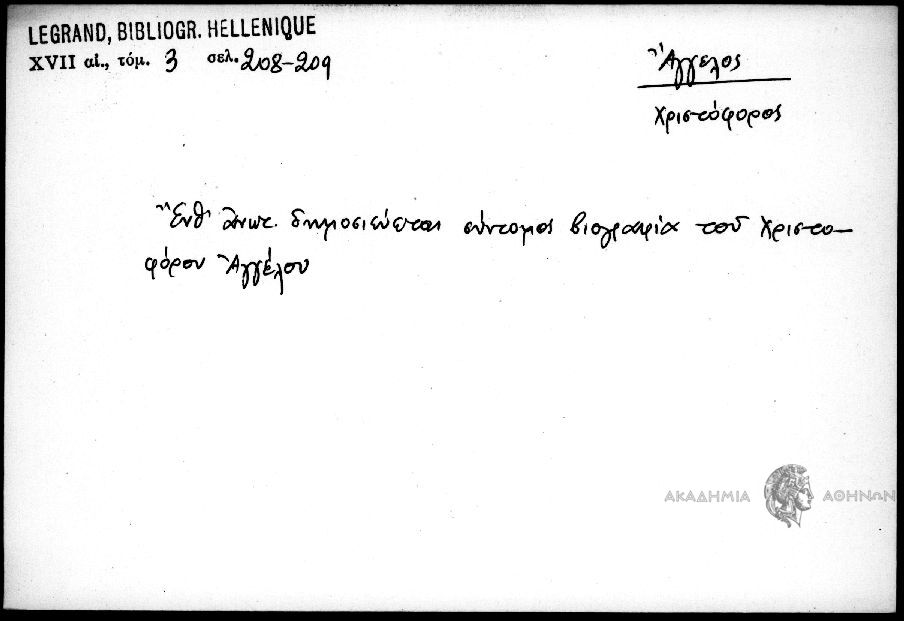 LEGRAND, BIBLIOGR. HELLENIQUE
XVII αἰ., τόμ. 3 σελ. 208-209
Ἄγγελος
Χριστόφορος
Ἔνθ' ἄνωτ. δημοσιεύεται σύντομος βιογραφία τοῦ Χριστο-
φόρου Ἀγγέλου
ΑΚΑΔΗΜΙΑ ΑΘΗΝΩΝ